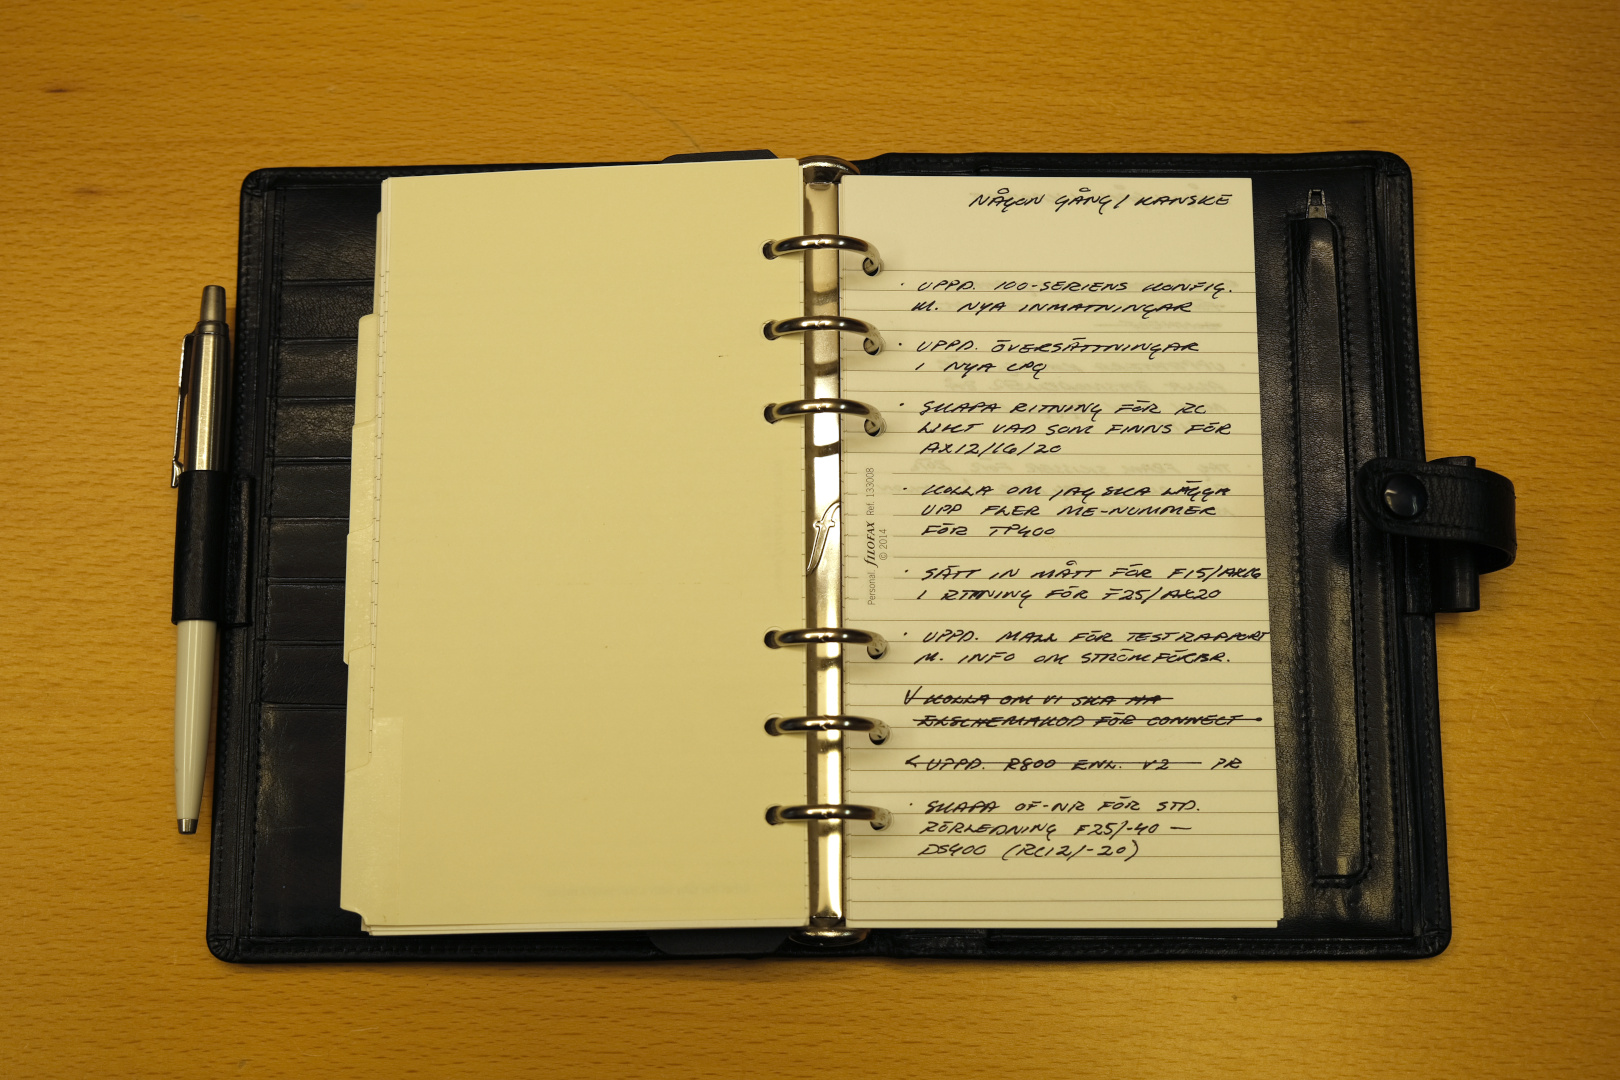 NÅGON GÅNG / KANSKE
· UPPD. 100-SERIENS KONFIG.
M. NYA INMATNINGAR
· UPPD. ÖVERSÄTTNINGAR
I NYA CPQ
· SKAPA RITNING FÖR RC
LIKT VAD SOM FINNS FÖR
AX12/16/20
· KOLLA OM JAG SKA LÄGGA
UPP FLER ME-NUMMER
FÖR TP400
· SÄTT IN MÅTT FÖR F15/AX16
I RITNING FÖR F25/AX20
· UPPD. MALL FÖR TESTRAPPORT
M. INFO OM STRÖMFÖRBR.
V KOLLA OM VI SKA HA
ELSCHEMAKOD FÖR CONNECT
< UPPD. R800 ENL. V2 — PR
· SKAPA OF-NR FÖR STD.
RÖRLEDNING F25/-40 —
DS400 (RC12/-20)
Personal. fILOFAX Ref. 133008
© 2014